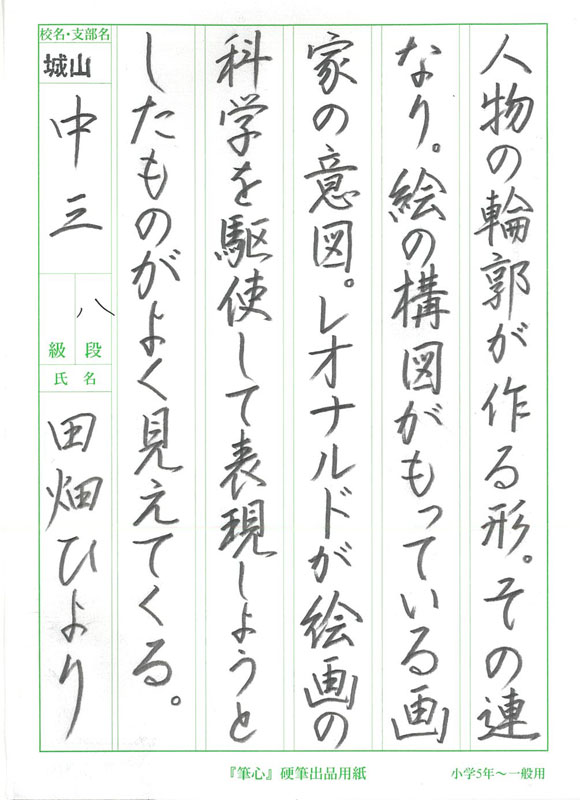 人物の輪郭が作る形。その連
なり。絵の構図がもっている画
家の意図。レオナルドが絵画の
科学を駆使して表現しようと
したものがよく見えてくる。
校名・支部名
城山
中三
八
段
級
氏名
田畑ひより
『筆心』硬筆出品用紙
小学5年〜一般用